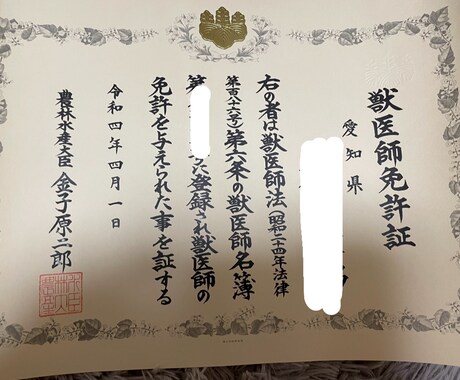 獣医師免許証
愛知県
右の者は獣医師法(昭和二十四年法律
第百八十六号)第六条の獣医師名簿
第 登録され獣医師の
免許を与えられた事を証する
令和四年四月一日
農林水産大臣 金子原二郎